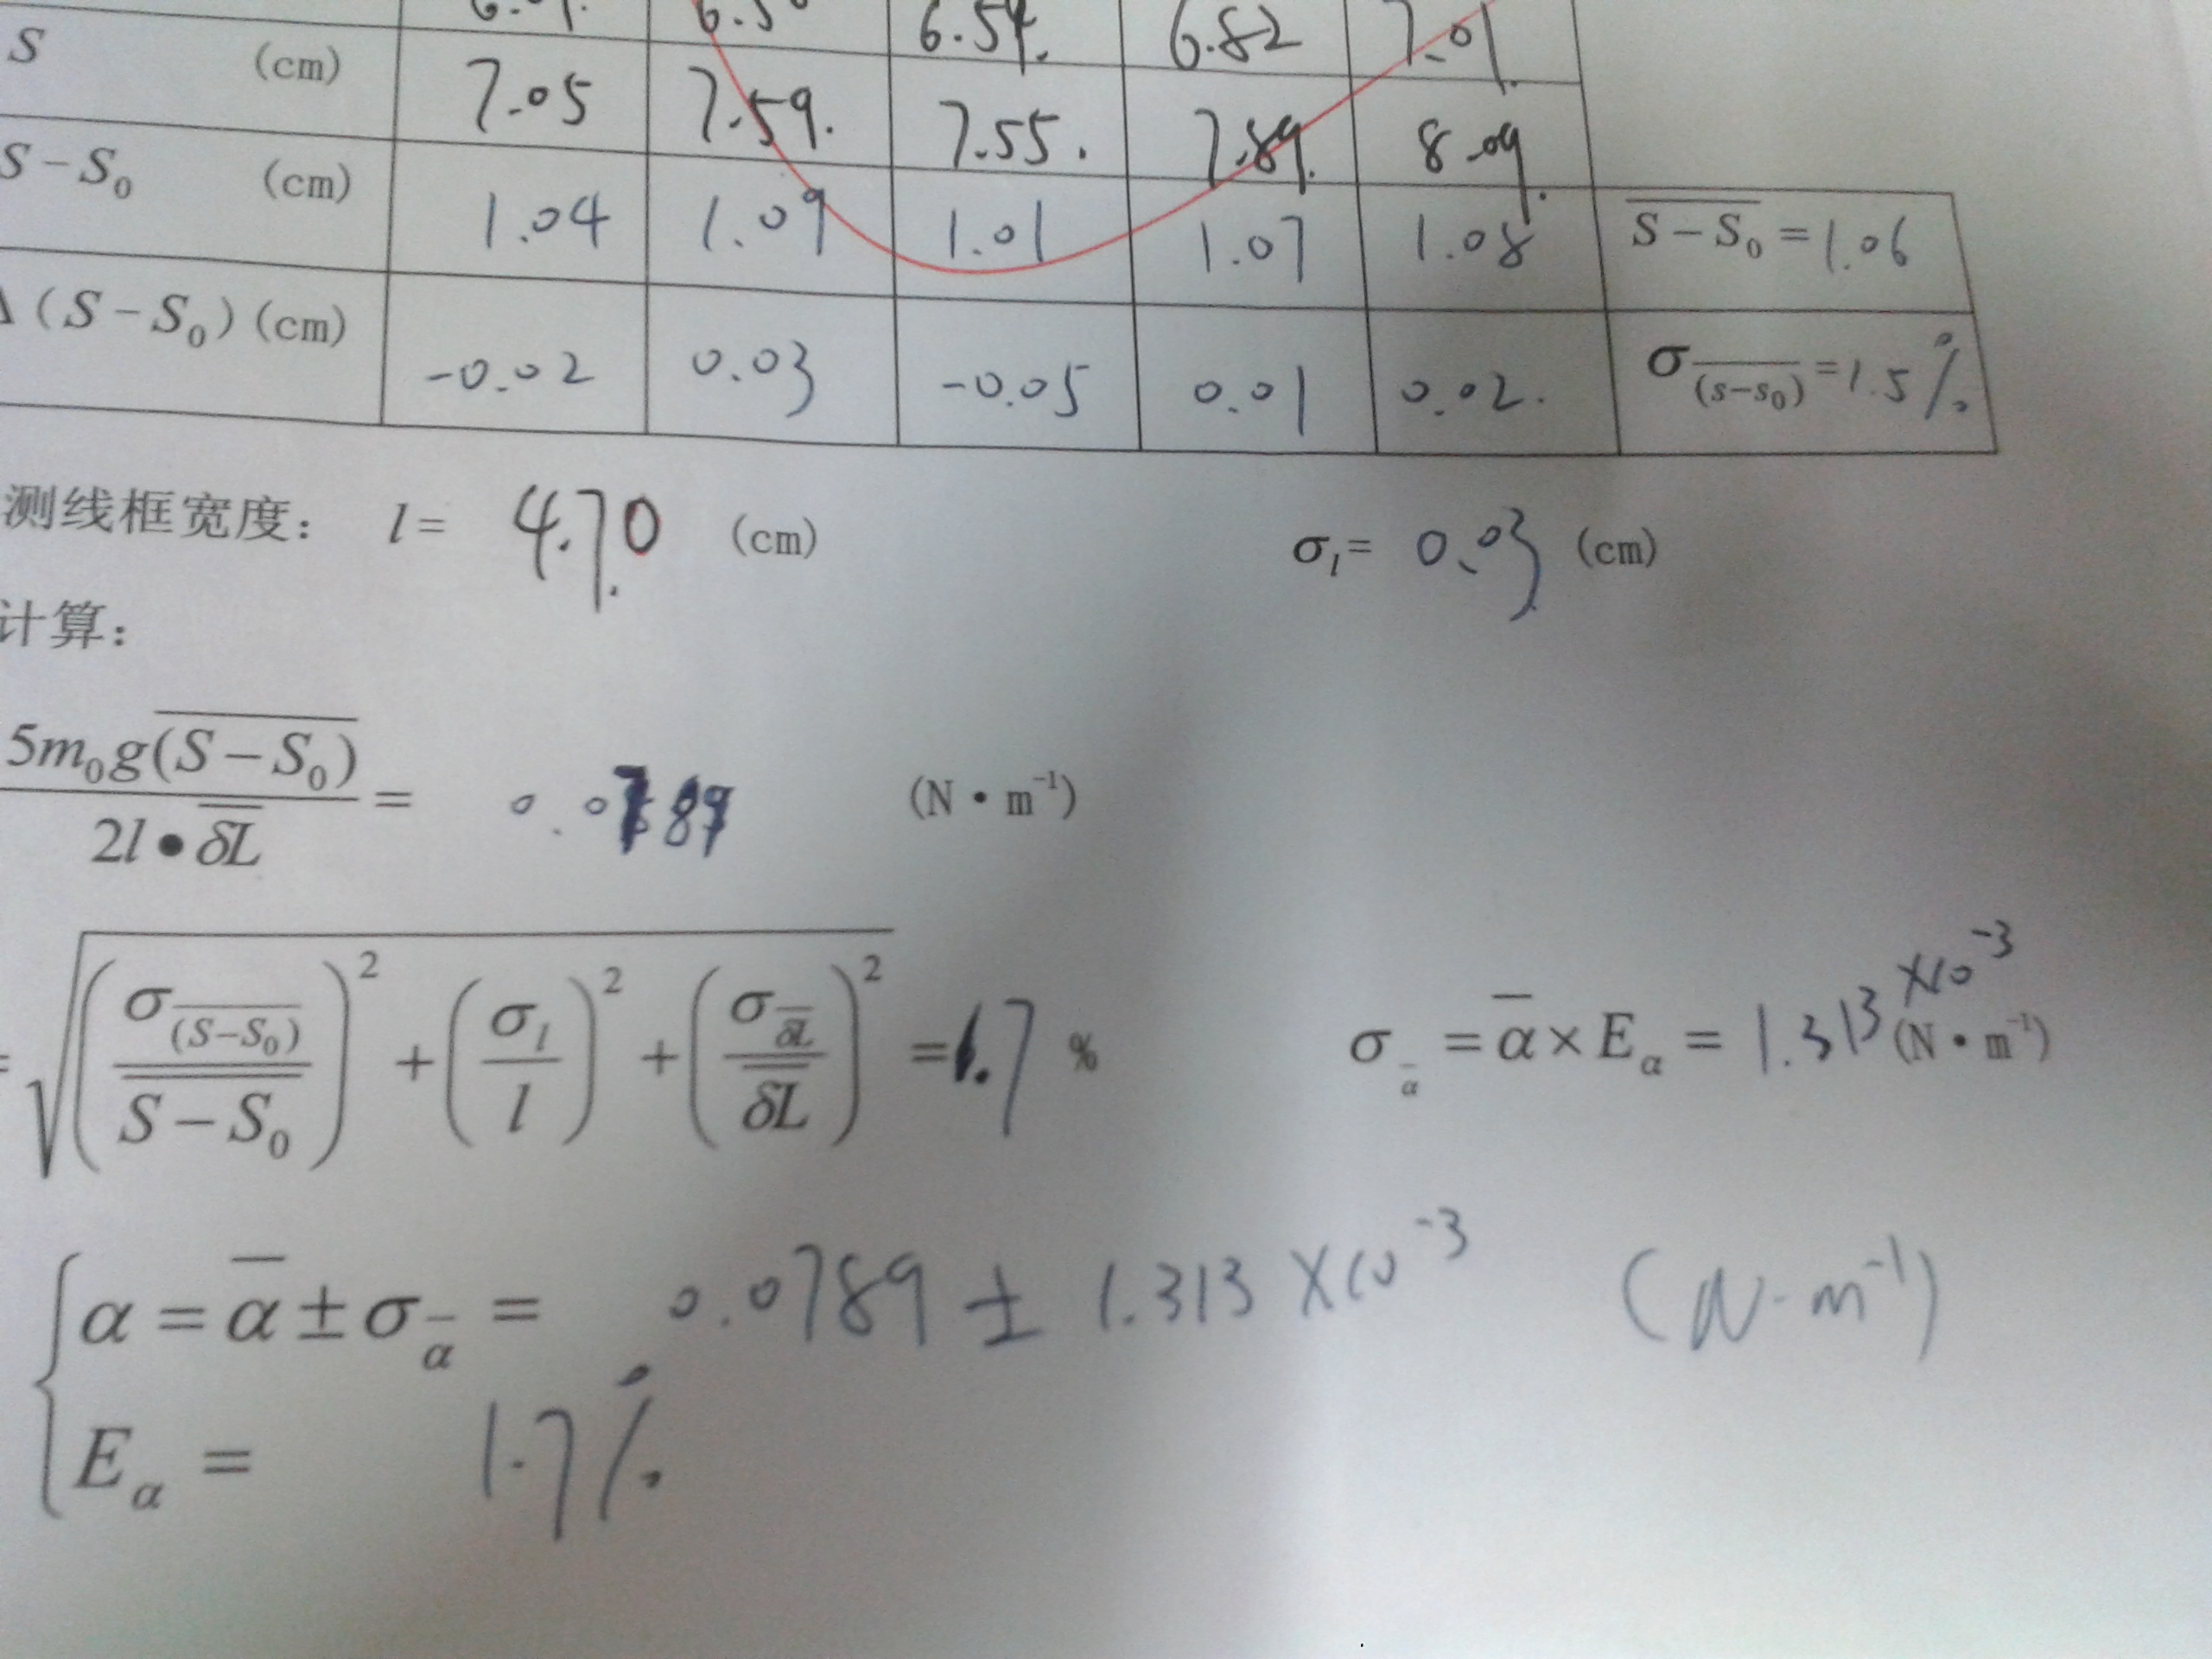 6.54. 6.82 7.01.
S (cm) 7.05 7.59. 7.55. 7.89. 8.09.
S-S₀ (cm) 1.04 1.09 1.01 1.07 1.08 S-S₀=1.06
Δ(S-S₀)(cm) -0.02 0.03 -0.05 0.01 0.02. σ(s-s₀)=1.5%
测线框宽度: l= 4.70 (cm) σₗ= 0.03 (cm)
计算:
5m₀g(S-S₀)
2l•δL
= 0.0789 (N·m⁻¹)
= √((σ(S-S₀)/S-S₀)²+(σₗ/l)²+(σδL/δL)²) =1.7 % σα =α×Eα = 1.313×10⁻³ (N·m⁻¹)
α=α±σα = 0.0789 ± 1.313×10⁻³ (N·m⁻¹)
Eα = 1.7%